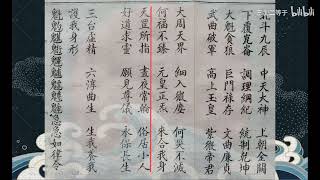 北斗九辰 中天大神 上朝金闕
下覆崑崙 調理綱紀 統制乾坤
大魁貪狼 巨門祿存 文曲廉貞
武曲破軍 高上玉皇 紫微帝君
大周天界 細入微塵 何災不滅
何福不臻 元皇正炁 來合我身
天罡所指 晝夜常輪 俗居小人
好道求靈 願見尊儀 永保長生
三台虛精 六淳曲生 生我養我
護我身形
急急如律令
bilibili